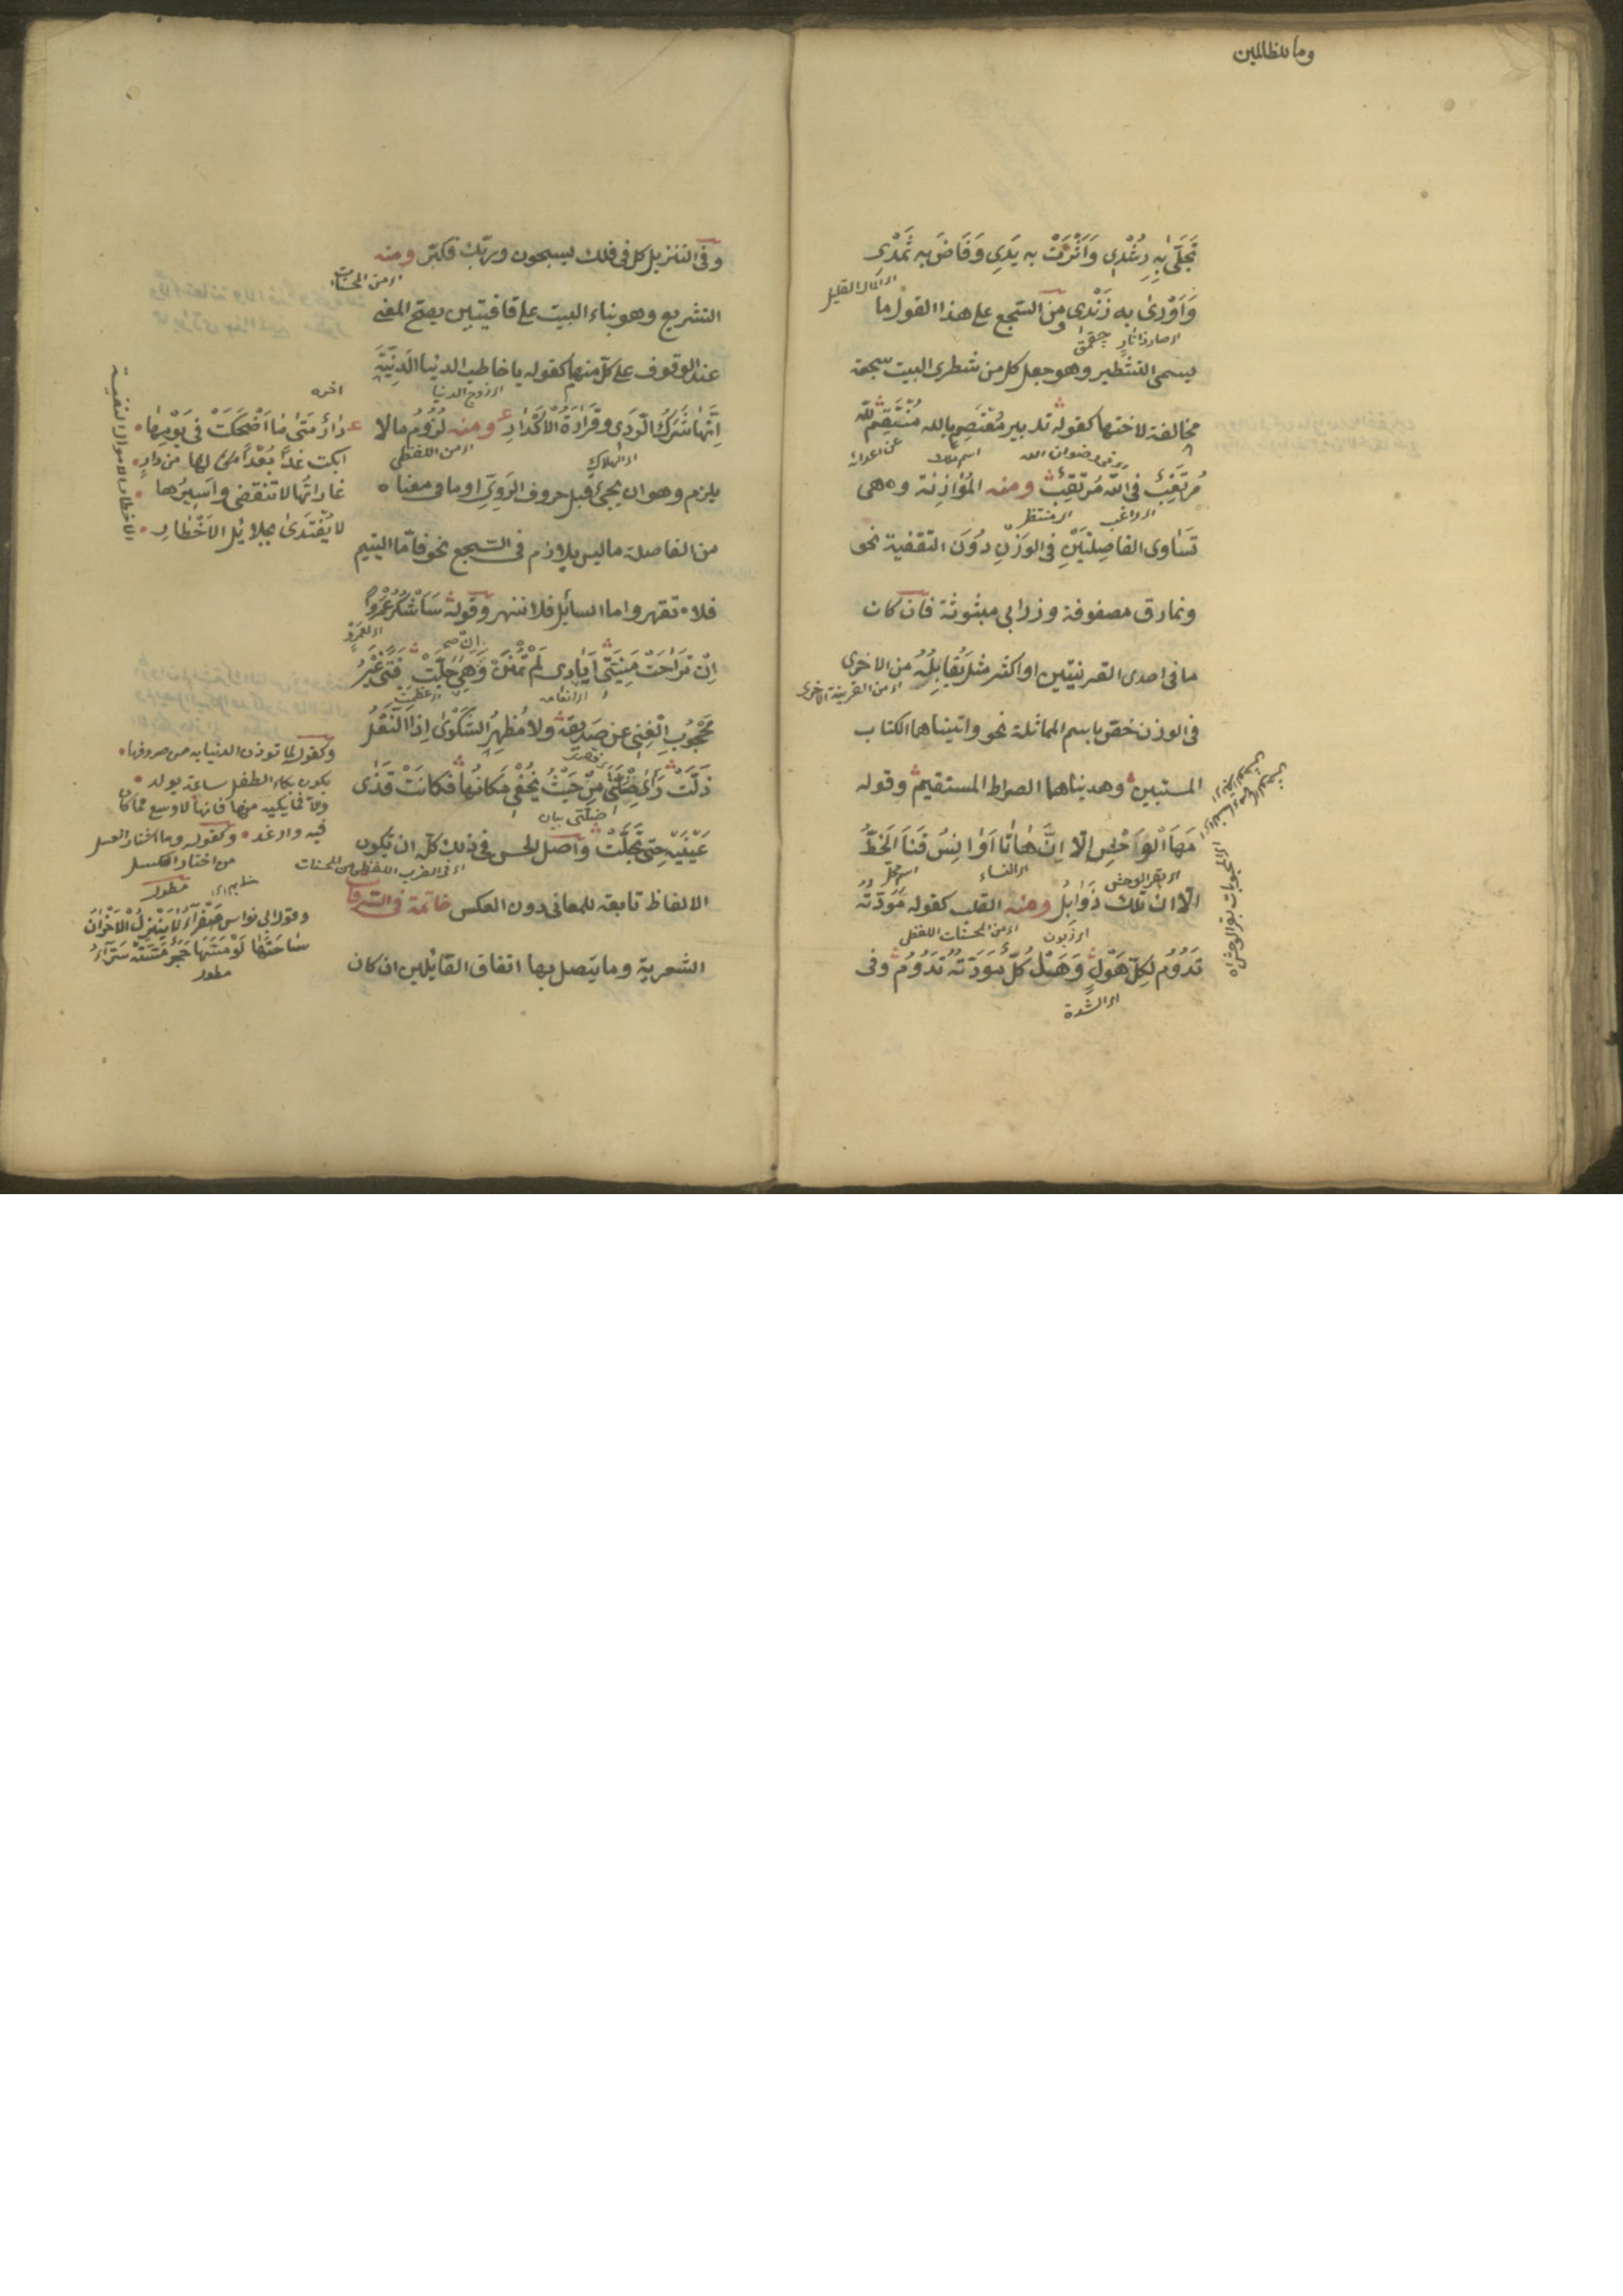 وما للظالمين
تَجَلَّى بِهِ رُشْدِي وَاَثْرَتْ به يَدِي وَفَاضَ به ثَمْدِي
اى المال القليل
وَاَوْرٰى به زَنْدِي ومن السّجع على هذا القول ما
اى صار ذا نار
يسمى التشطير وهو جعل كل من شطرى البيت سجعة
مخالفة لاختها كقوله تدبير مُعْتَصِمٍ بالله مُنْتَقِمٍ لله
مُرْتَغِبٍ فى الله مُرْتَقِبٍ ومنه المُوَازِنة وهى
اى راغب
اى منتظر
تَسَاوى الفاصِلتَيْنِ فى الوَزْنِ دُوْنَ التقفية نحو
ونمارق مصفوفة وزرابى مبثوثة فان كان
ما فى احدى القرينتين او اكثر مثلَ يُقابِلُهُ من الاخرى
اى من القرينة الاخرى
فى الوزن خصّ باسم المماثلة نحو واتيناهما الكتاب
المستبين وهديناهما الصراط المستقيم وقوله
مَهَا الْوَحْشِ اِلّا اِنَّ هَاتَا اَوَانِسُ قَنَا الْخَطِّ
اى بقر الوحش
اى النساء
الّا ان تلك ذَوَابِلُ ومنه القلب كقوله مَوَدّتُه
اى من المحسنات اللفظى
تَدُوْمُ لِكُلِّ هَوْلٍ وَهَلْ كُلٌّ مَوَدّتُهُ تَدُوْمُ وفى
اى الشدة
وفى التنزيل كل فى فلك يسبحون وربّك فكبّر ومنه
اى من المحسنات
التشريع وهو بناء البيت على قافيتين يصحّ المعنى
عند الوقوف على كلّ منهما كقوله يا خاطب الدنيا الدَنِيّةِ
اى زوج الدنيا
اِنَّهَا شَرَكُ الرَّدَى وقَرَارَةُ الاَكْدَارِ ومنه لُزُوْمُ ما لا
اى الهلاك
اى من اللفظى
يلزم وهو ان يجئ قبل حروف الرَوِىِّ او ما فى معناه
من الفاصلة ما ليس بلازم فى السّجع نحو فامّا اليتيم
فلا تقهر واما السائل فلا تنهر وقوله سَاَشْكُرُ عَمْرواً
اِنْ تَرَاخَتْ مَنِيَّتِى اَيَادِىَ لَمْ تُمْنَنْ وَهِىَ جَلَّتْ فَتًى غَيْرُ
مَحْجُوْبِ الْغِنى عن صَدِيقِهِ ولا مُظْهِرُ الشَّكْوٰى اِذَا النَّعْلُ
زَلَّتْ رَاٰى خَلَّتِى مِنْ حَيْثُ يَخْفٰى مَكَانُهَا فكانَتْ قَذٰى
عَيْنَيْهِ حتى تَجَلَّتْ واصل الحسن فى ذلك كلّه ان تكون
الالفاظ تابعة للمعانى دون العكس خاتمة فى السّرقات
الشعرية وما يتصل بها اتفاق القائلين ان كان
اخره
دَارٌ مَتٰى مَا اَضْحَكَتْ فى يَوْمِهَا
ابكت غداً بُعْداً لها من دارٍ
غاراتُها لا تنقضى واَسِيرُها
لا يُفْتَدَى بجلائل الاَخْطَارِ
وكقوله لما تؤذن الدنيا به من صروفها
يكون بكاء الطفل ساعة يولد
والا فما يبكيه منها فانها لاوسع مما كان
فيه وارغد وكقوله وما اشتار العسل
من اختار الكسل
مطول
وقول ابى نواس صَفْرَآءُ لا تَنْزِلُ الاَحْزَانُ
سَاحَتَهَا لَوْ مَسَّهَا حَجَرٌ مَسَّتْهُ سَرَّآءُ
مطول